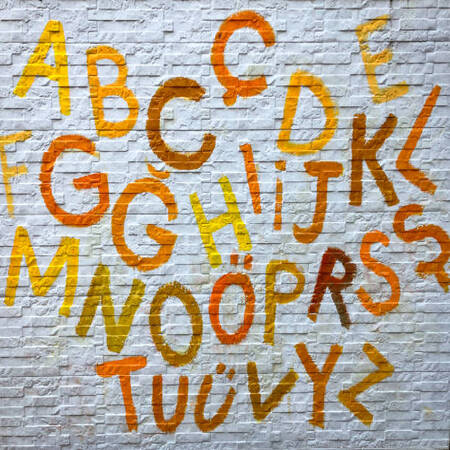 A B C Ç D E
F G Ğ H I İ J K L
M N O Ö P R S Ş
T U Ü V Y Z